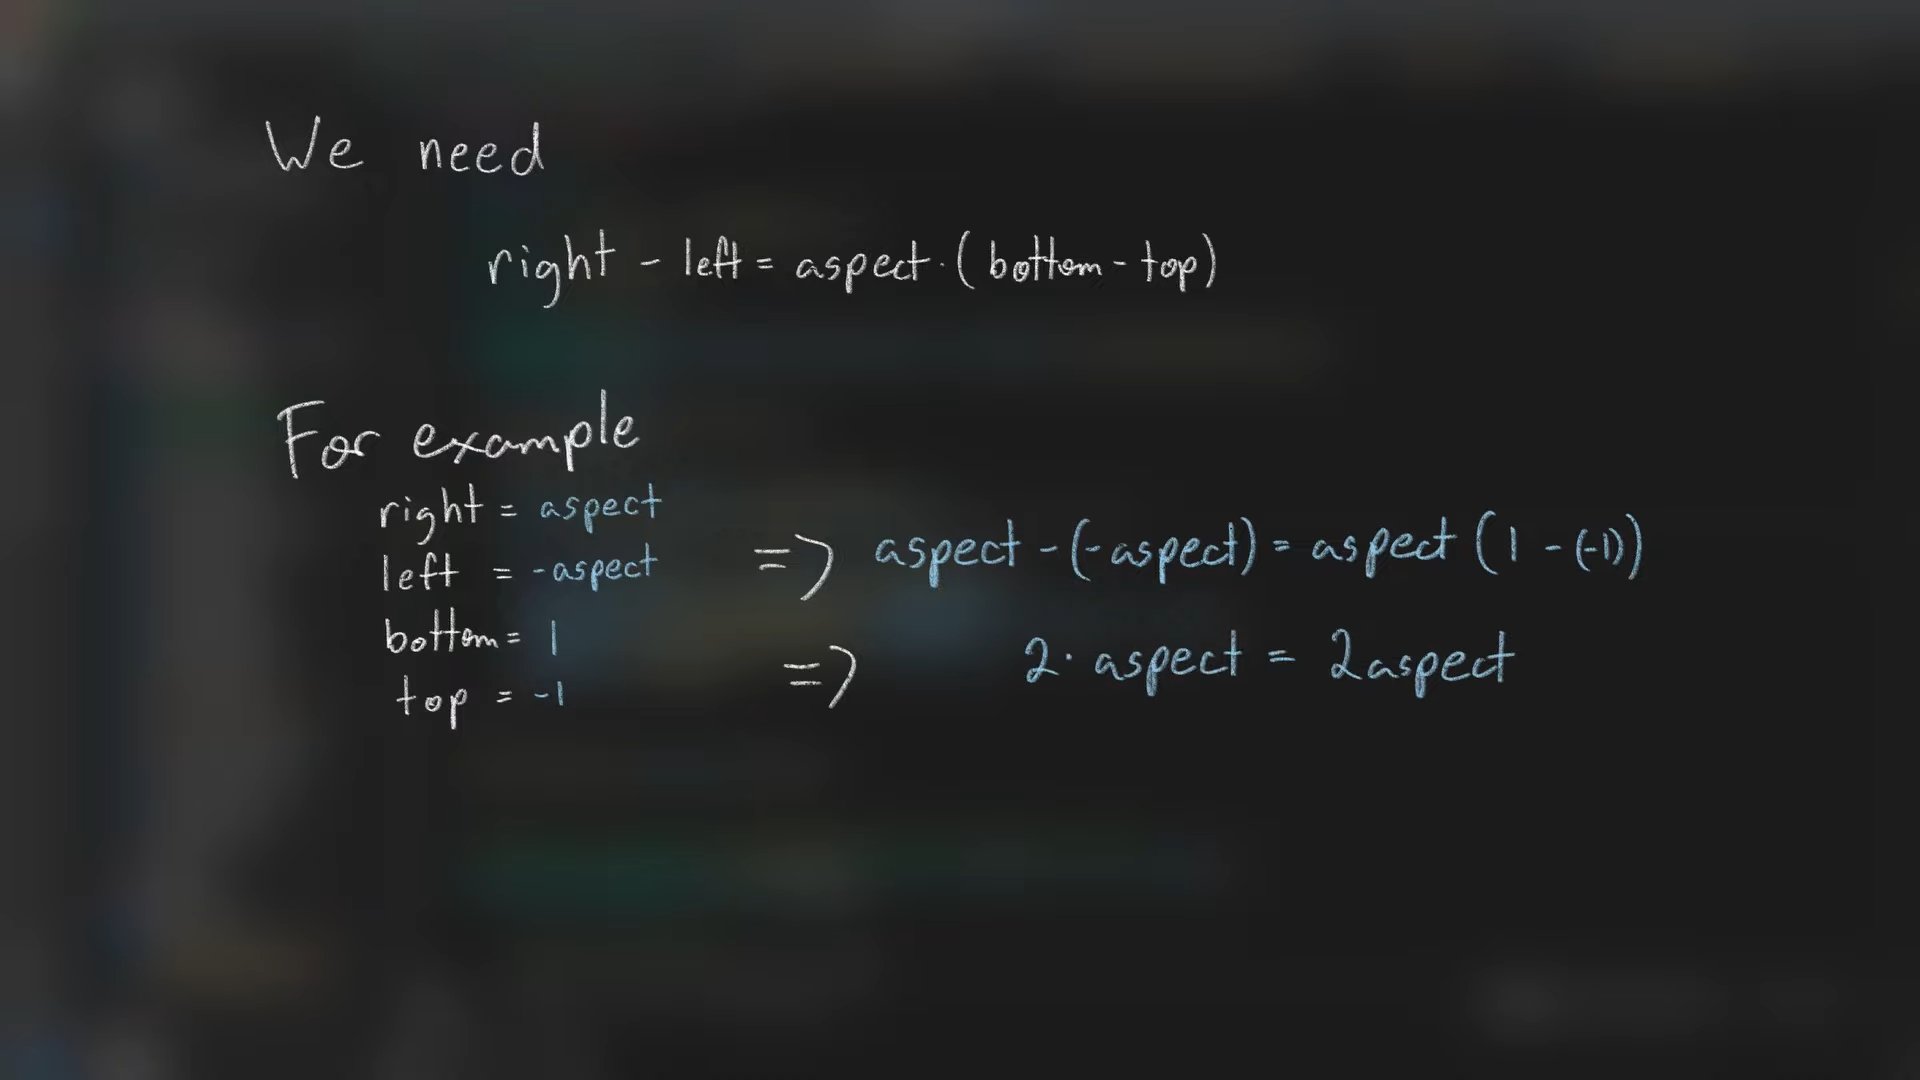 We need
right - left = aspect · (bottom - top)
For example
right = aspect
left = -aspect
bottom = 1
top = -1
=> aspect - (-aspect) = aspect (1 - (-1))
=> 2 · aspect = 2aspect